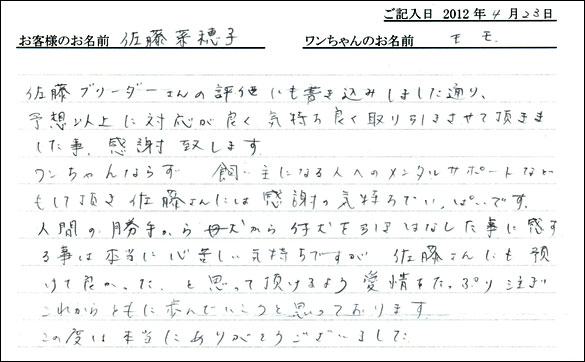 ご記入日 2012年4月23日
お客様のお名前 佐藤菜穂子 ワンちゃんのお名前 モモ
佐藤ブリーダーさんの評価にも書き込みしました通り、
予想以上に対応が良く気持ち良く取り引きさせて頂きま
した事、感謝致します。
ワンちゃんならず 飼い主になる人へのメンタルサポートなど
もして頂き佐藤さんには感謝の気持ちでいっぱいです。
人間の勝手から母犬から仔犬を引きはなした事に感ず
る事は本当に心苦しい気持ちですが 佐藤さんにも預
けて良かった、と思って頂けるよう愛情をたっぷり注ぎ
これからともに歩んでいこうと思っております。
この度は本当にありがとうございました